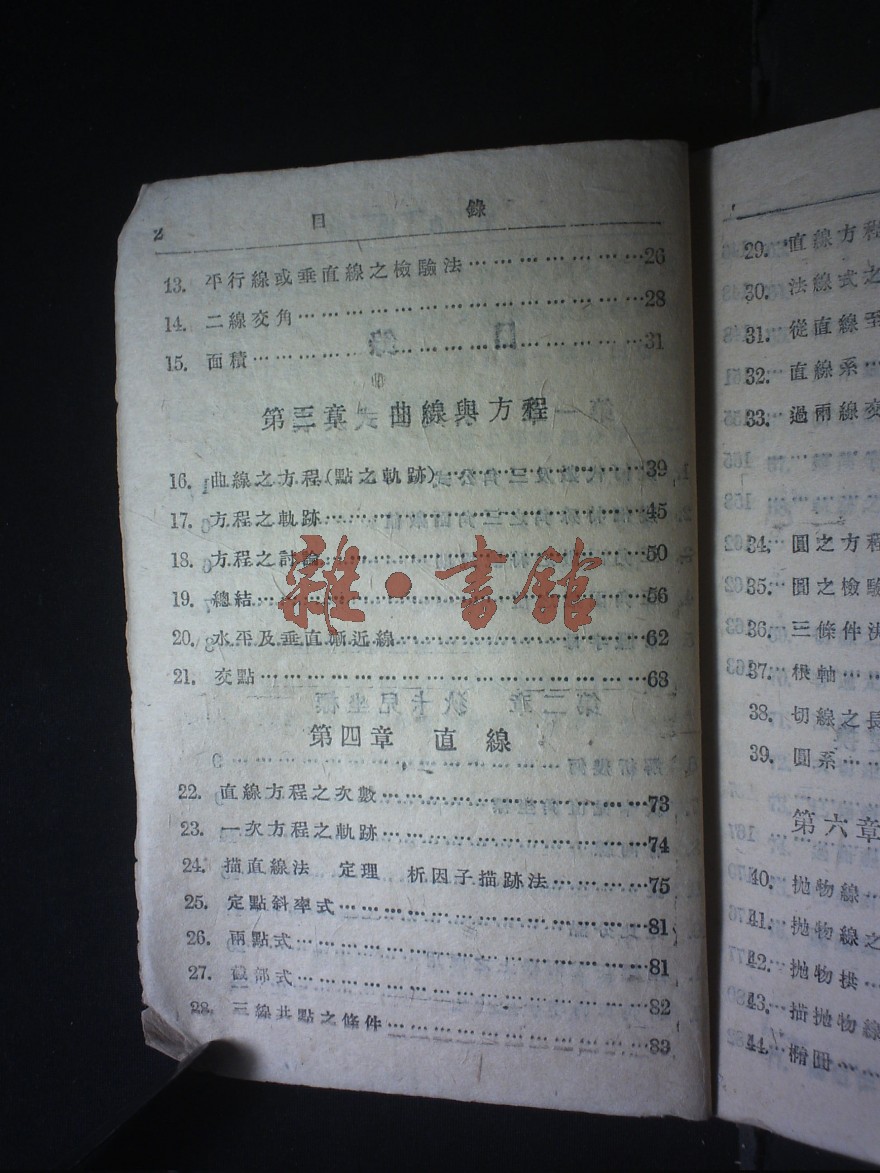 2 目 錄
13. 平行線或垂直線之檢驗法……………………26
14. 二線交角……………………………………28
15. 面積…………………………………………31
第三章 曲線與方程
16. 曲線之方程(點之軌跡)……………………39
17. 方程之軌跡…………………………………45
18. 方程之討論…………………………………50
19. 總結…………………………………………56
20. 水平及垂直漸近線…………………………62
21. 交點…………………………………………68
第四章 直線
22. 直線方程之次數……………………………73
23. 一次方程之軌跡……………………………74
24. 描直線法 定理 析因子描跡法……………75
25. 定點斜率式…………………………………81
26. 兩點式………………………………………81
27. 截部式………………………………………82
28. 三線共點之條件……………………………83
雜·書館
29. 直線方程
30. 法線式之
31. 從直線至
32. 直線系……
33. 過兩線交
34. 圓之方程
35. 圓之檢驗
36. 三條件決
37. 根軸……
38. 切線之長
39. 圓系……
第六章
40. 拋物線……
41. 拋物線之
42. 拋物拱……
43. 描拋物線
44. 橢圓……